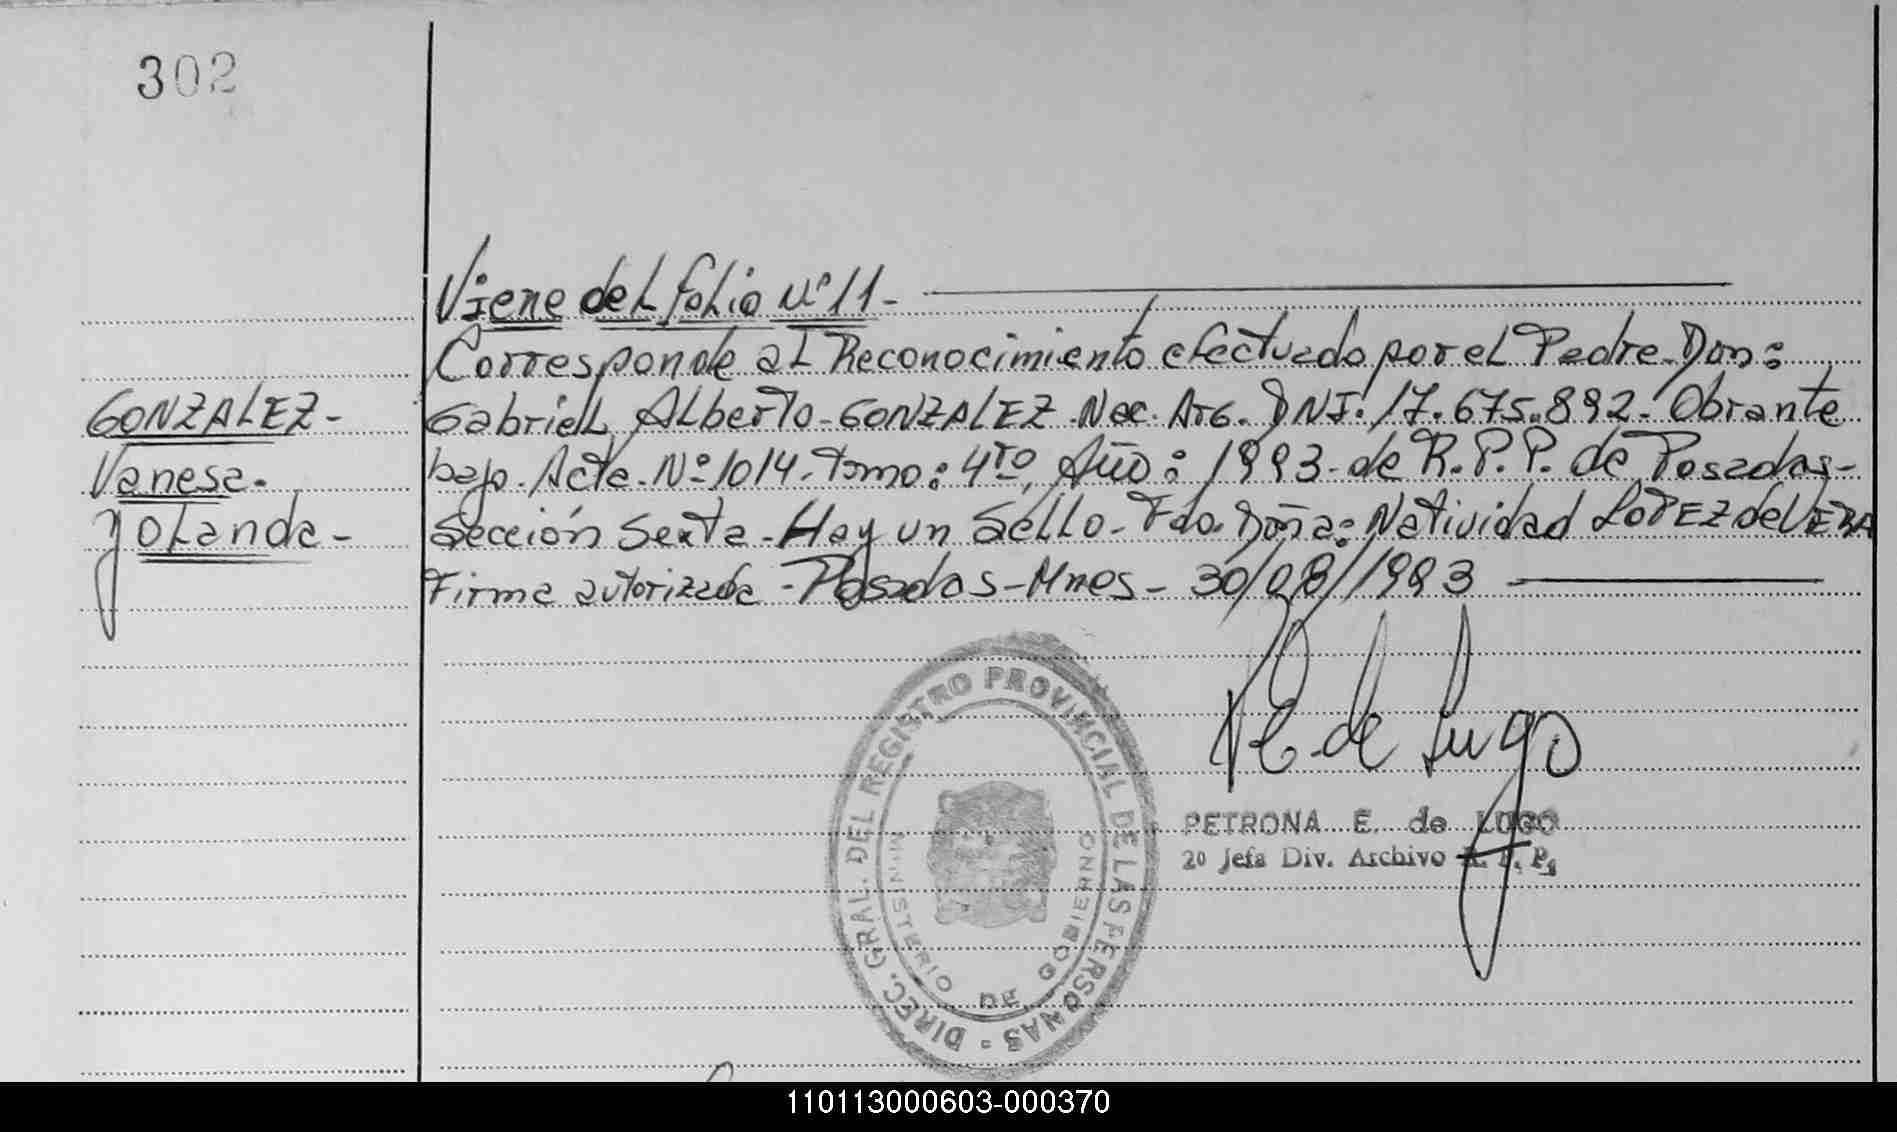 302
Viene del folio Nº 11.-
Corresponde al Reconocimiento efectuado por el Padre-Don:
GONZALEZ-
Gabriel Alberto-GONZALEZ-Nac. Arg. DNI. 17.675.892.- Obrante
Vanesa.
bajo. Acta. Nº 1014. tomo: 4to, Año: 1993-de R.P.P. de Posadas-
Yolanda-
Sección Sexta-Hay un Sello-Fdo. Doña: Natividad LOPEZ de VERA
Firma autorizada-Posadas-Mnes- 30/08/1993
P E. de Lugo
PETRONA E. de LUGO
2º Jefa Div. Archivo R. P. P.
DIREC. GRAL. DEL REGISTRO PROVINCIAL DE LAS PERSONAS -
MINISTERIO DE GOBIERNO
110113000603-000370